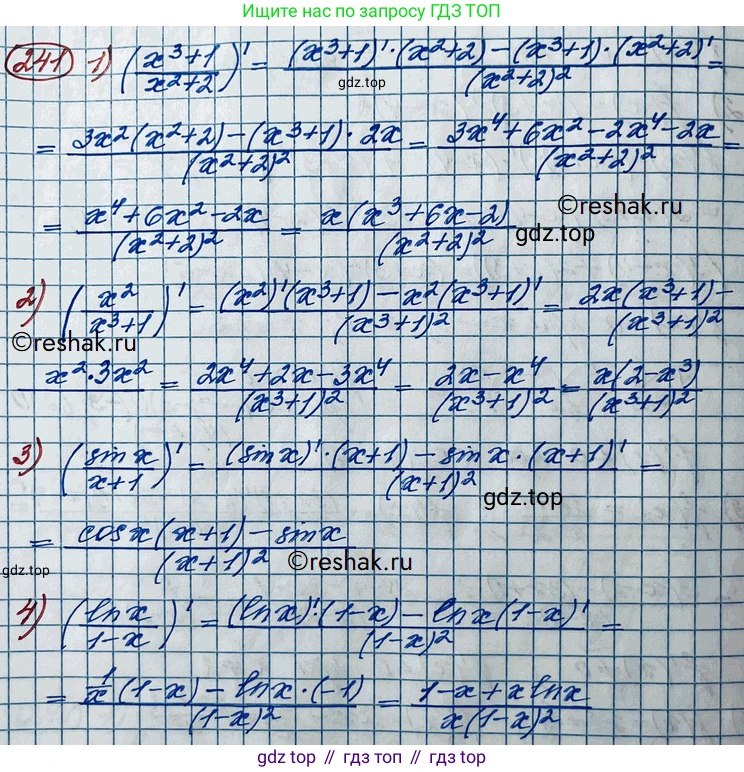 Ищите нас по запросу ГДЗ ТОП
241 1) ((x³+1)/(x²+2))' = ((x³+1)'·(x²+2)-(x³+1)·(x²+2)')/(x²+2)² =
gdz.top
= (3x²(x²+2)-(x³+1)·2x)/(x²+2)² = (3x⁴+6x²-2x⁴-2x)/(x²+2)² =
= (x⁴+6x²-2x)/(x²+2)² = (x(x³+6x-2))/(x²+2)²
©reshak.ru
gdz.top
2) (x²/(x³+1))' = ((x²)'(x³+1)-x²(x³+1)')/(x³+1)² = (2x(x³+1)-)/(x³+1)²
©reshak.ru
x²·3x² = (2x⁴+2x-3x⁴)/(x³+1)² = (2x-x⁴)/(x³+1)² = (x(2-x³))/(x³+1)²
3) (sin x/(x+1))' = ((sin x)'·(x+1)-sin x·(x+1)')/(x+1)² =
gdz.top
= (cos x(x+1)-sin x)/(x+1)²
gdz.top
©reshak.ru
4) (ln x/(1-x))' = ((ln x)'·(1-x)-ln x(1-x)')/(1-x)² =
= (1/x(1-x)-ln x·(-1))/(1-x)² = (1-x+x ln x)/(x(1-x)²)
gdz top // гдз топ // gdz.top // гдз.топ